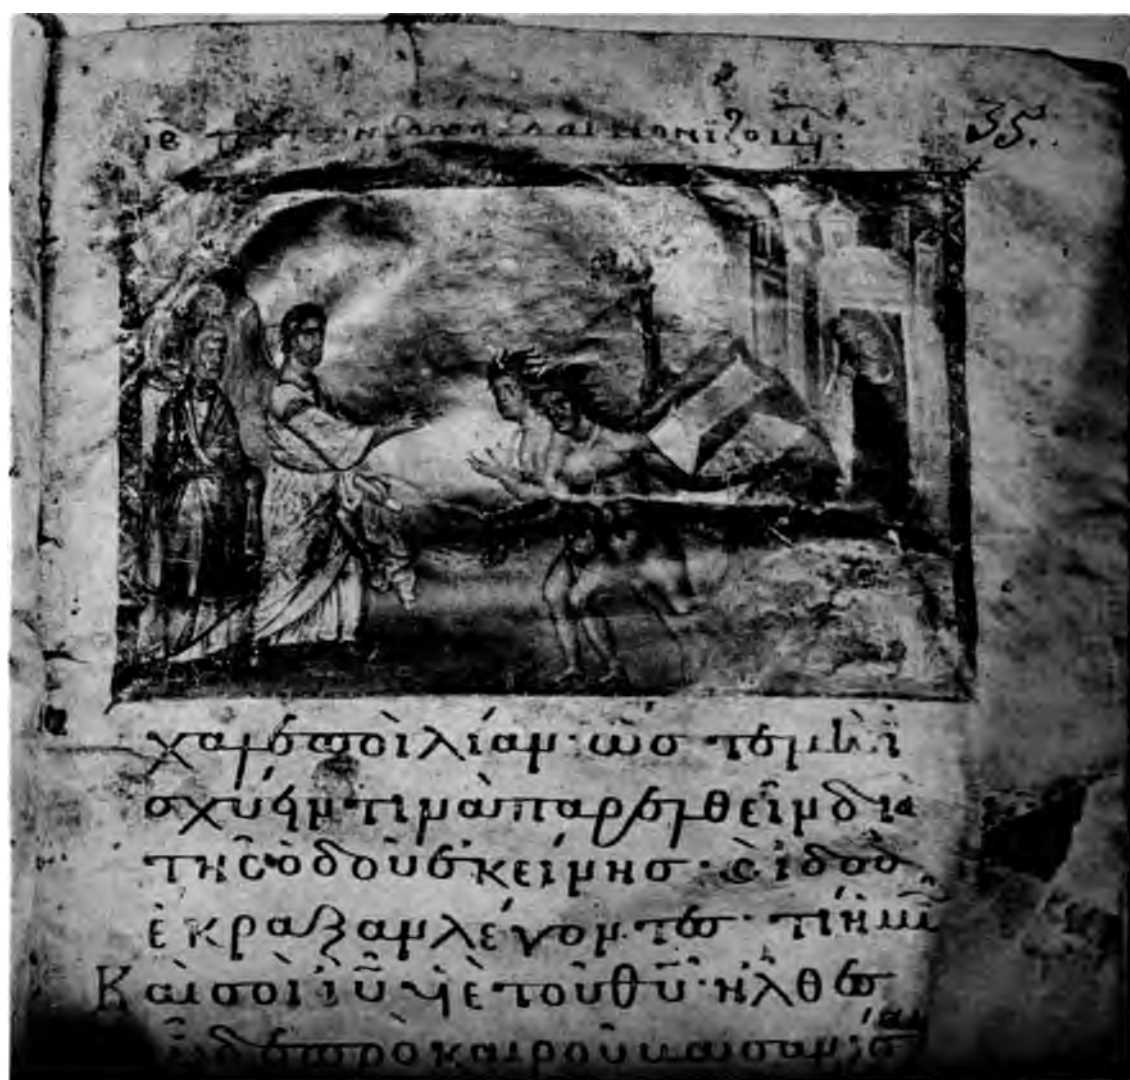 δαιμονϊζομ 35.
χαλεποὶ λίαν· ὥστε μὴ ἰ
σχύειν τινὰ παρελθεῖν διὰ
τῆς ὁδοῦ ἐκείνης· ϗ ἰδοὺ
ἔκραξαν λέγοντες· τί ἡμῖν
Καὶ σοὶ ἰῦ υἱὲ τοῦ θῦ· ἦλθες
ὧδε πρὸ καιροῦ βασανίσαι